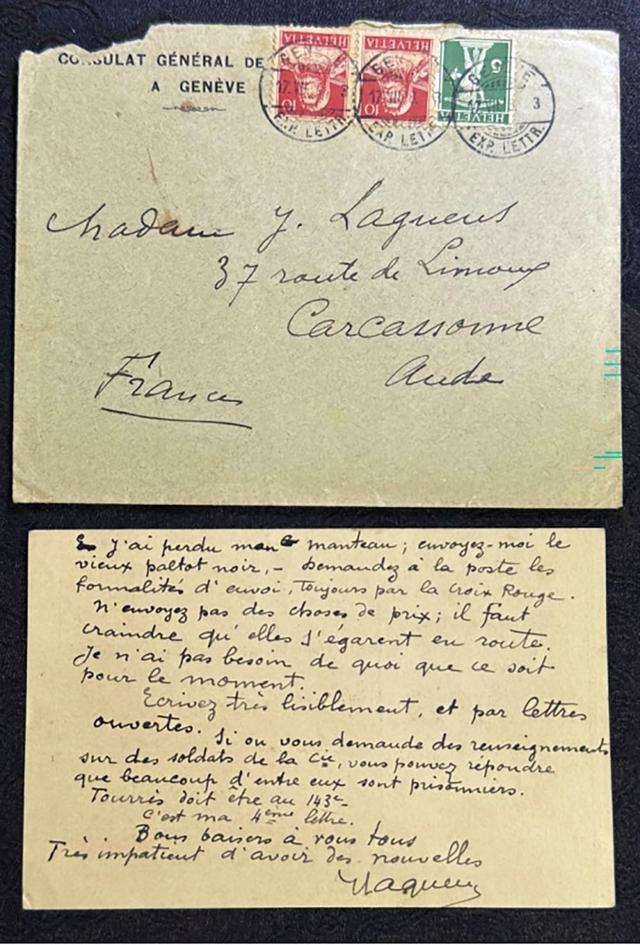 CONSULAT GÉNÉRAL DE
A GENÈVE
HELVETIA
10
HELVETIA
10
HELVETIA
5
17.VIII
3
EXP. LETTR.
17.VIII
EXP. LETTR.
17
3
EXP. LETTR.
Madame J. Laqueus
37 route de Limoux
Carcassonne
Aude
France
J'ai perdu mon manteau ; envoyez-moi le
vieux paltot noir, – Demandez à la poste les
formalités d'envoi, toujours par la Croix Rouge.
N'envoyez pas des choses de prix ; il faut
craindre qu'elles s'égarent en route.
Je n'ai pas besoin de quoi que ce soit
pour le moment.
Ecrivez très lisiblement, et par lettres
ouvertes. Si on vous demande des renseignements
sur des soldats de la Cie, vous pouvez répondre
que beaucoup d'entre eux sont prisonniers.
Tourrès doit être au 143e
C'est ma 4ème lettre.
Bons baisers à vous tous
Très impatient d'avoir des nouvelles